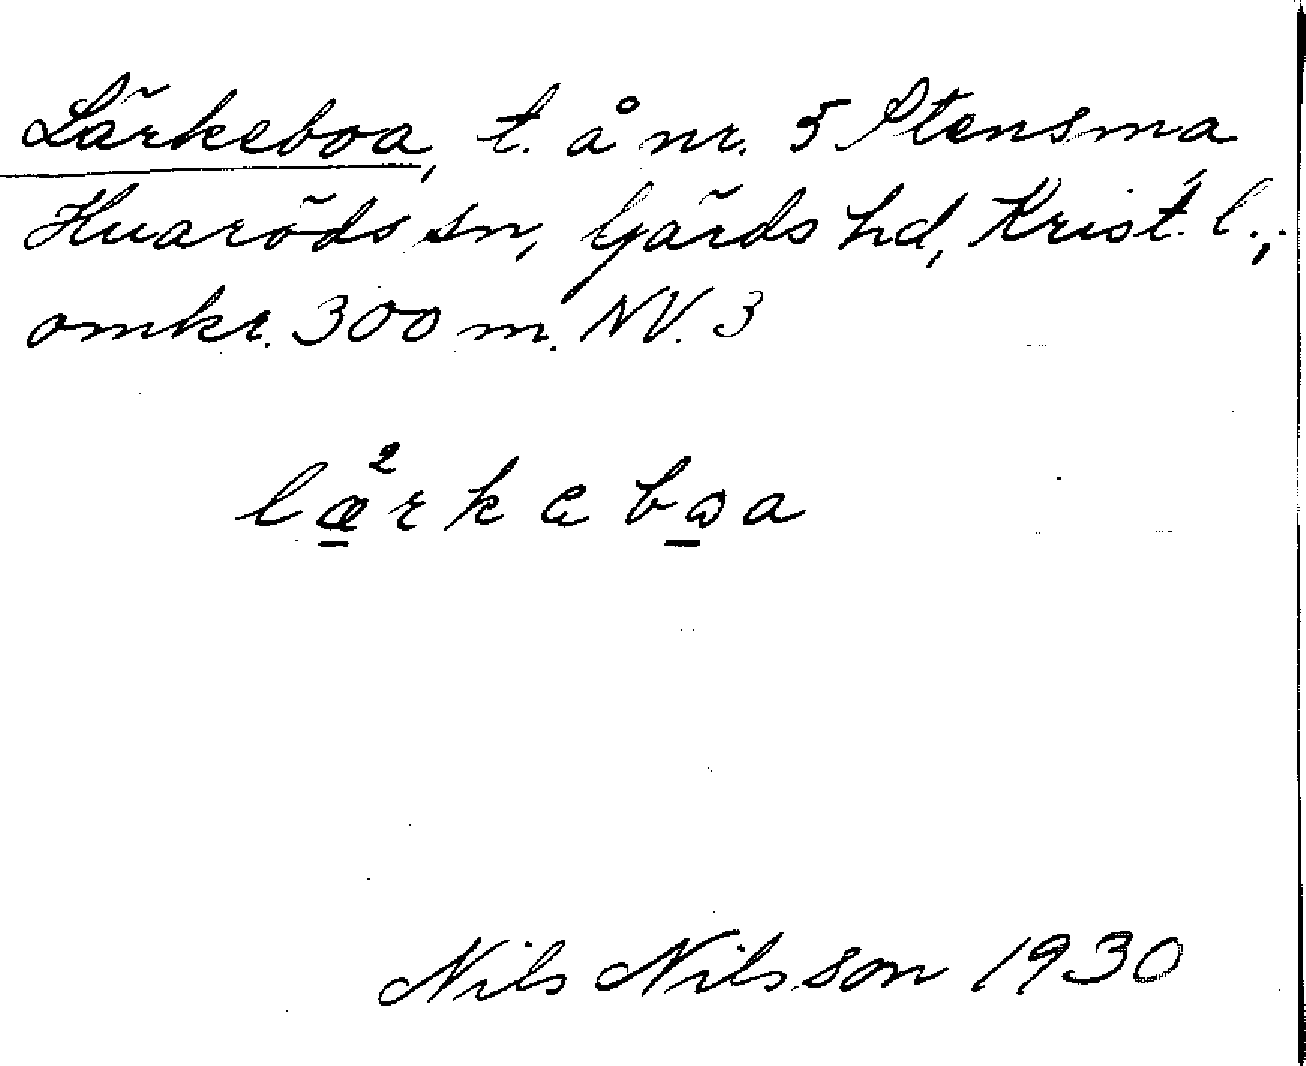 Lärkeboa, t. å nr. 5 Stensma
Huaröds sn, Gärds hd, Krist. l.,
omkr. 300 m. NV. 3
læ²rkeboa
Nils Nilsson 1930